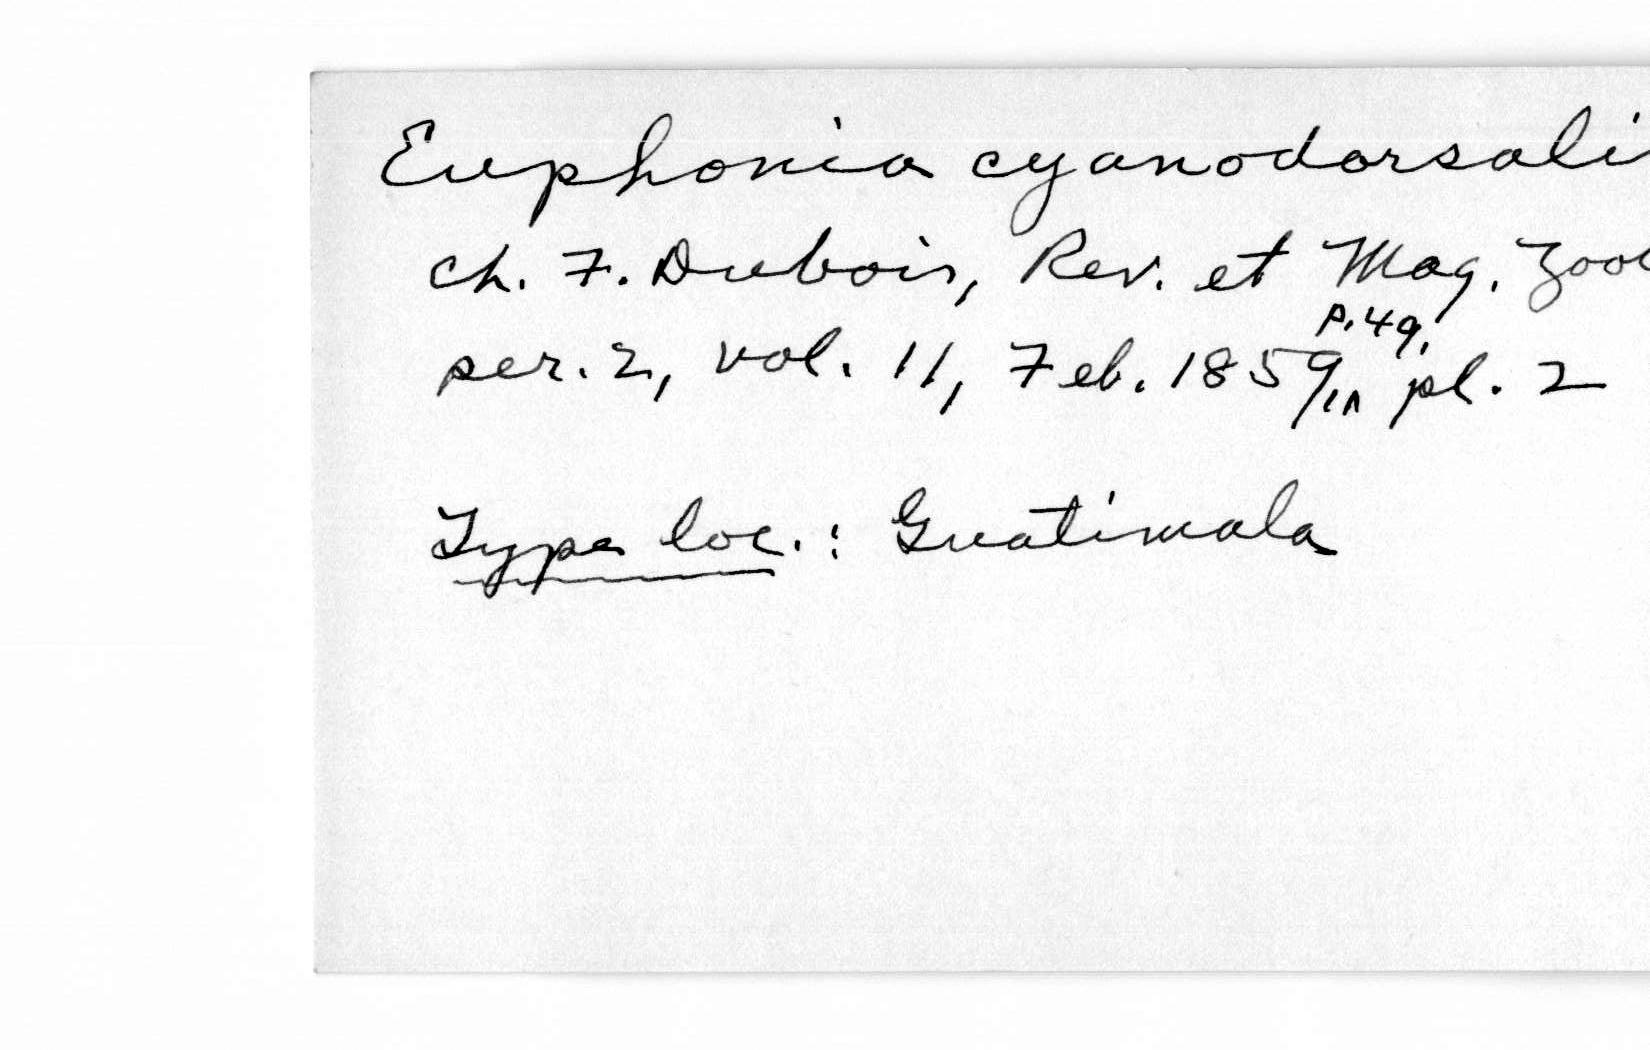 Euphonia cyanodorsali
Ch. F. Dubois, Rev. et Mag. Zool
ser. 2, vol. 11, Feb. 1859, p. 49, pl. 2
Type loc.: Guatimala